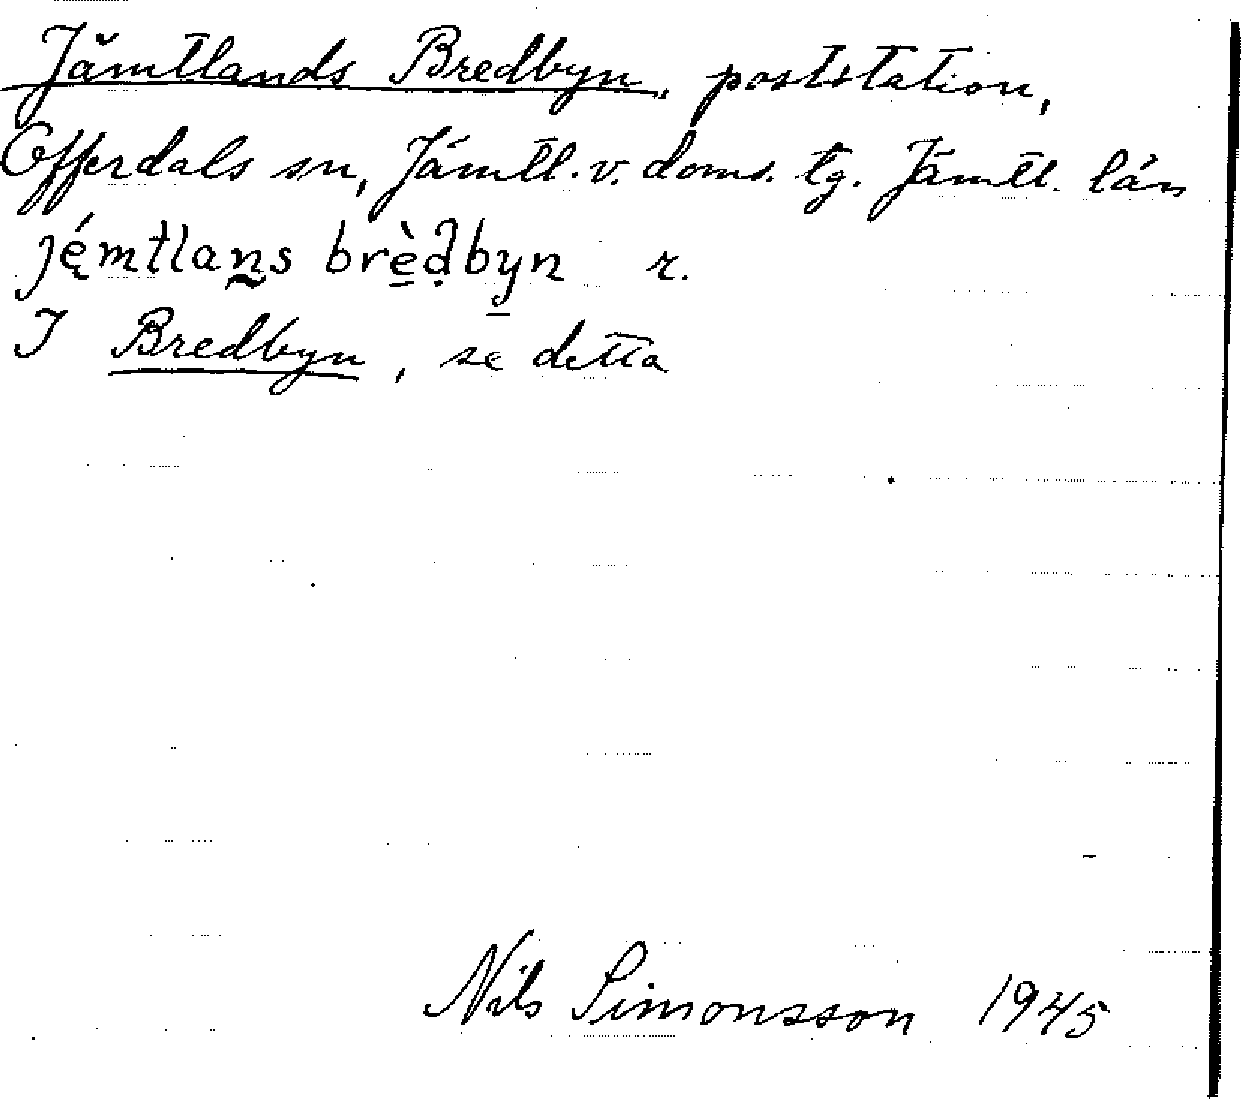 Jämtlands Bredbyn, poststation,
Offerdals sn, Jämtl. v. doms. tg. Jämtl. län
ję́mtlan̰s brè̲ḍby̲n r.
I Bredbyn, se detta
Nils Simonsson 1945